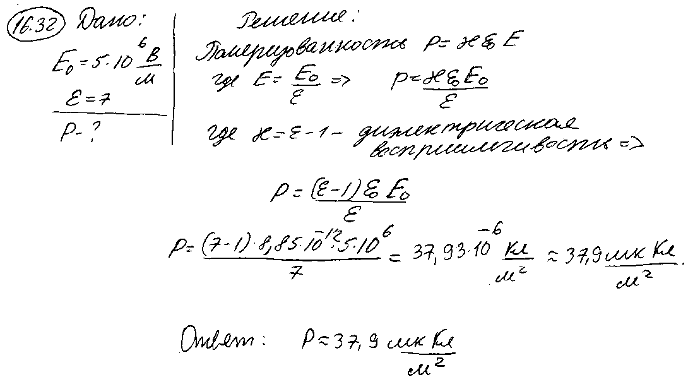 16.32 Дано:
E₀ = 5·10⁶ В/м
ε = 7
P - ?
Решение:
Поляризованность P = æε₀E
где E = E₀/ε => P = æε₀E₀/ε
где æ = ε - 1 - диэлектрическая
восприимчивость =>
P = (ε-1)ε₀E₀/ε
P = (7-1)·8,85·10⁻¹²·5·10⁶/7 = 37,93·10⁻⁶ Кл/м² ≈ 37,9 мк Кл/м².
Ответ: P ≈ 37,9 мк Кл/м²